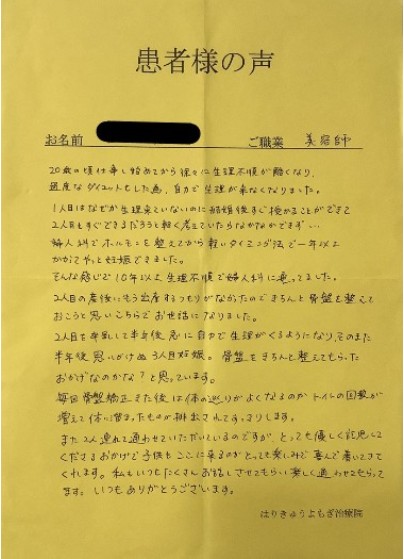 患者様の声
お名前
ご職業 美容師
20歳の頃仕事し始めてから徐々に生理不順が酷くなり、
過度なダイエットもした為、自力で生理が来なくなりました。
1人目はなぜか生理来ていないのに結婚後すぐ授かることができて
2人目もすぐできるだろうと軽く考えていたらなかなかできずい
婦人科でホルモンを整えてから軽いタイミング法で一年以上
かかってやっと妊娠できました。
そんな感じで10年以上生理不順で婦人科に通ってました。
2人目の産後にもう出産するつもりがなかったのできちんと骨盤を整えて
おこうと思いこちらでお世話になりました。
2人目を卒乳して半年後急に自力で生理がくるようになり、そのまた
半年後思いがけぬ3人目妊娠。骨盤をきちんと整えてもらった
おかげなのかな?と思っています。
毎回骨盤矯正きた後は体の巡りがよくなるのかトイレの回数が
増えて体に溜まったものが排出されてすっきりします。
また2人連れて通わせていただいているのですが、とっても優しく対応して
くださるおかげで子供もここに来るのがとっても楽しみで喜んで着いてきて
くれます。私もいつもたくさんお話しさせてもらい楽しく通わせてもらって
ます。いつもありがとうございます。
はりきゅうよもぎ治療院